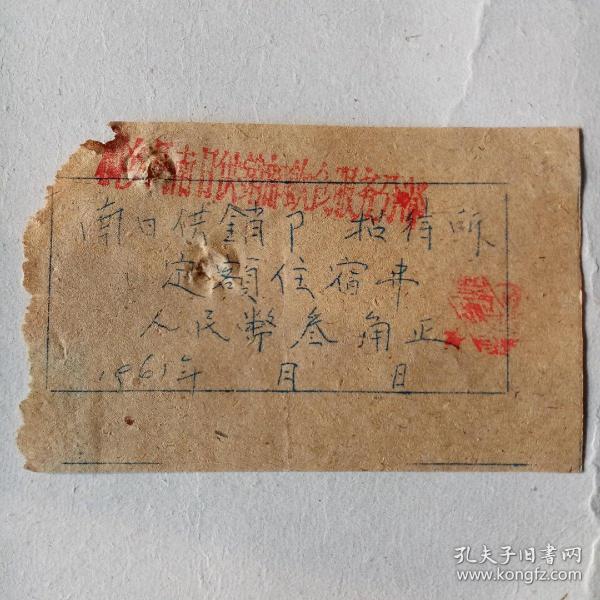 南日供销部饮食服务
南日供銷卩 招待所
定額住宿
人民幣叁角正
1961年 月 日
孔夫子旧書网
www.kongfz.com